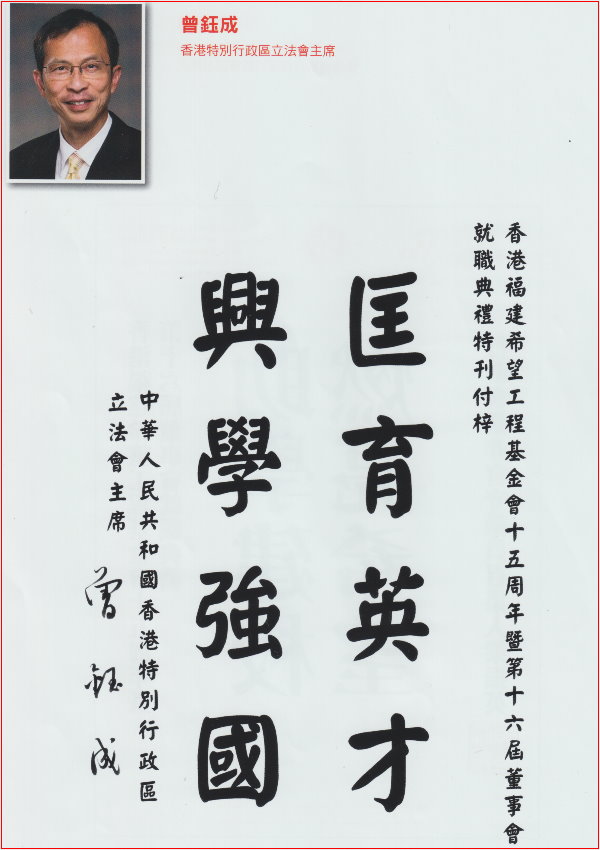 曾鈺成
香港特別行政區立法會主席
香港福建希望工程基金會十五周年暨第十六屆董事會
就職典禮特刊付梓
匡育英才
興學強國
中華人民共和國香港特別行政區
立法會主席
曾鈺成